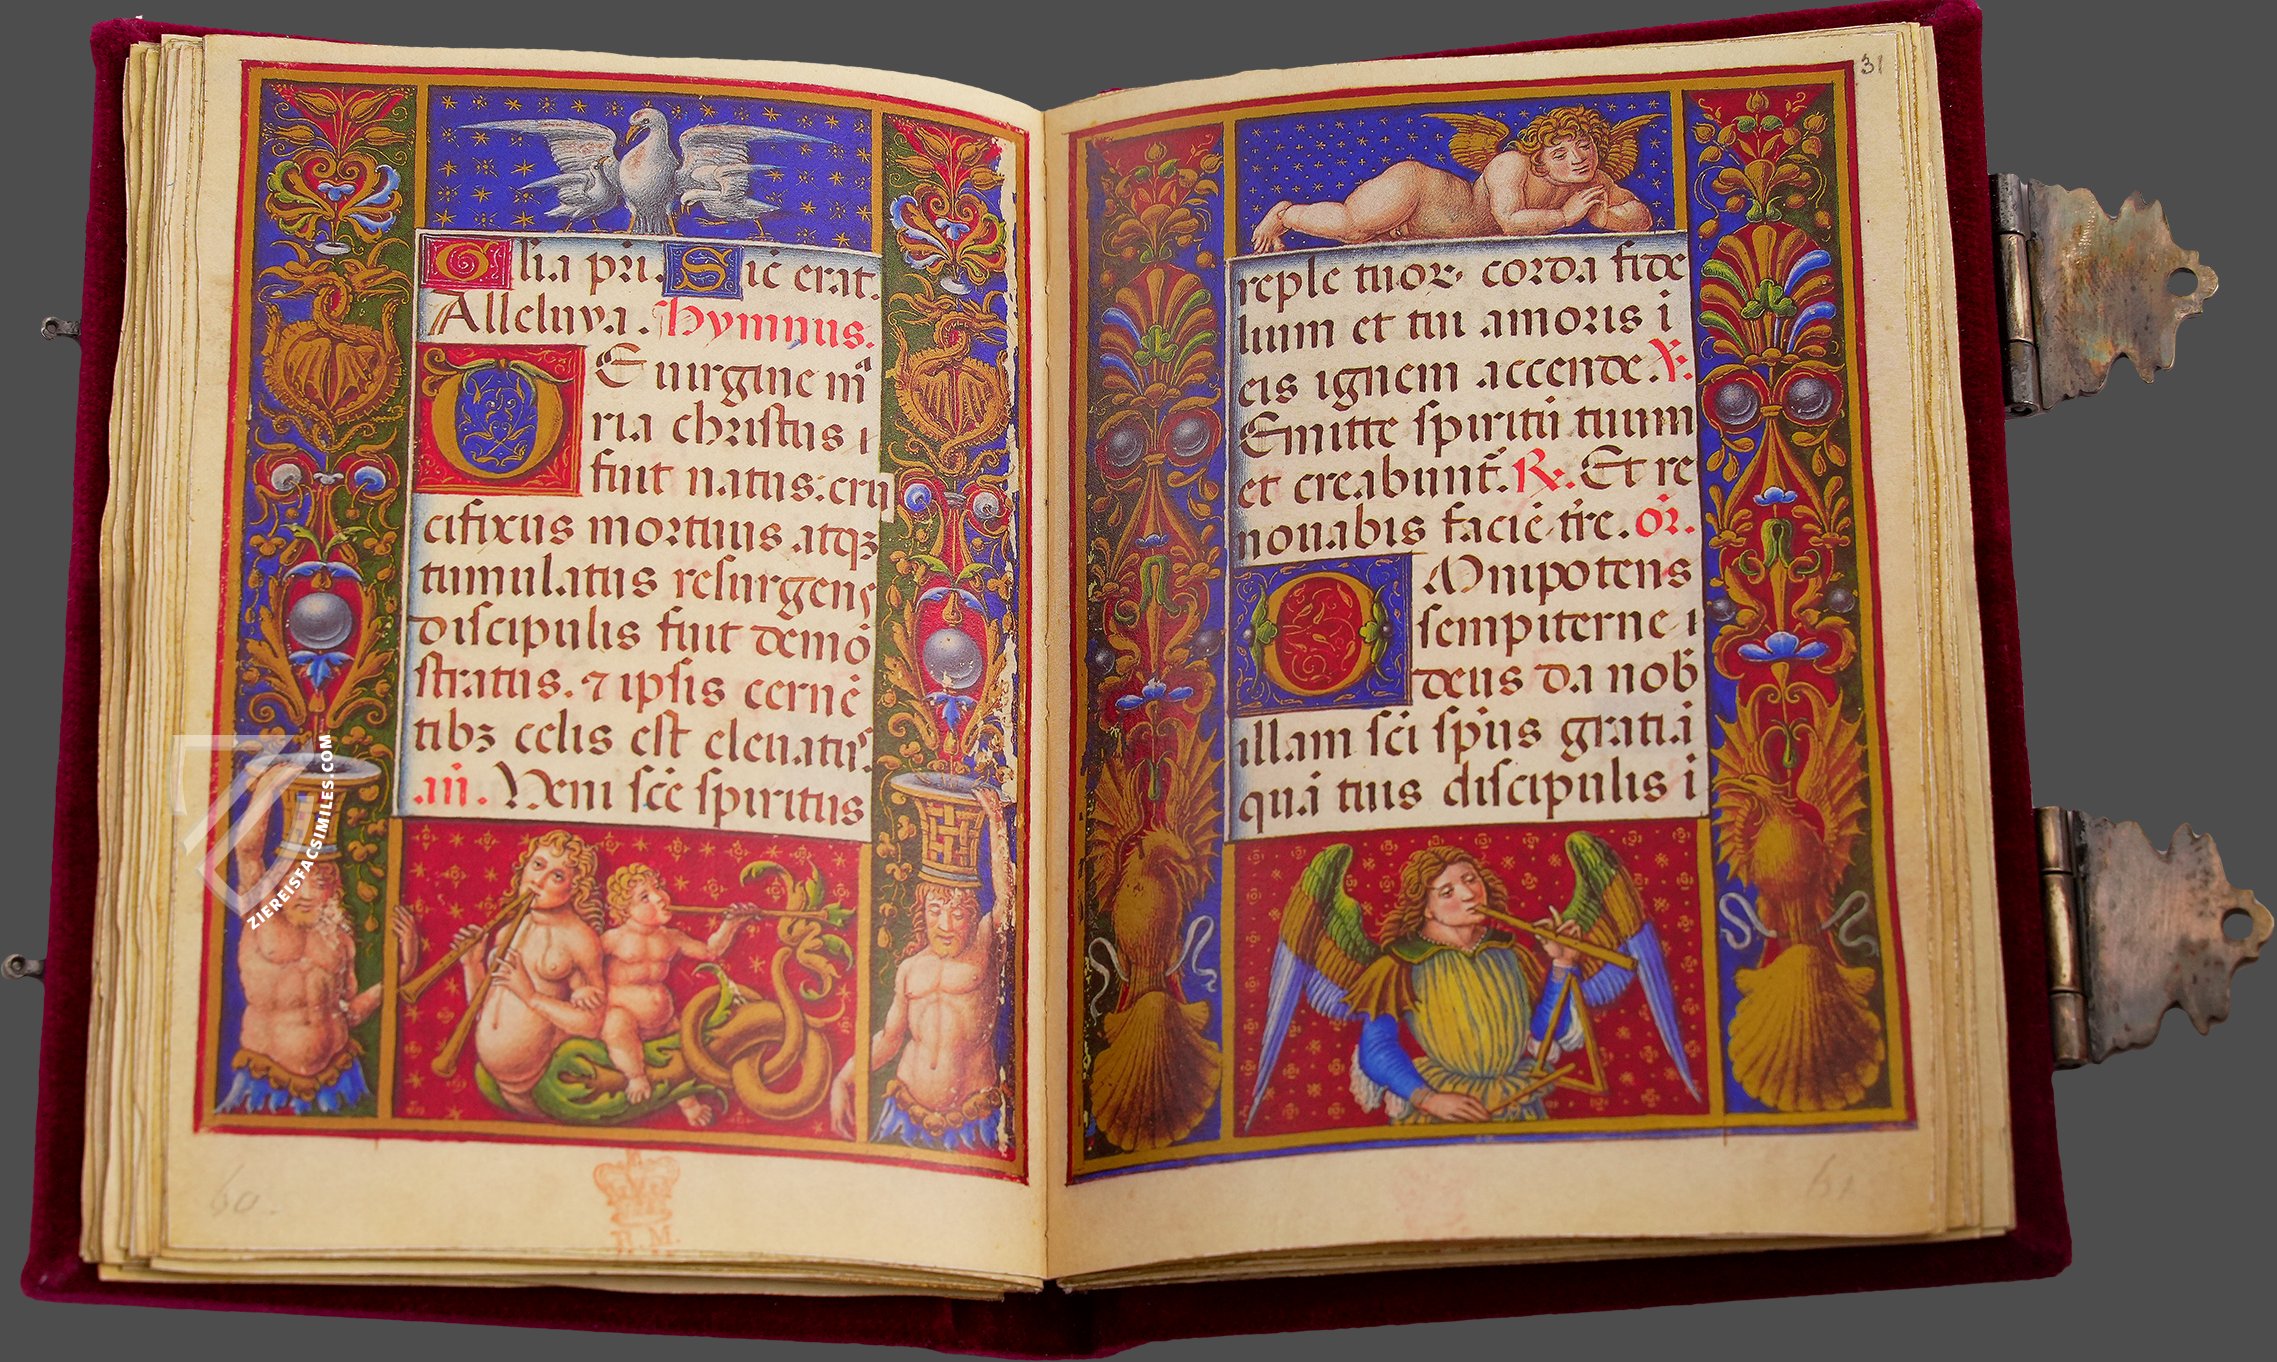 Glia pri. Sic̄ erat.
Alleluya. Hymnus.
DE uirgine m̄
ria christus
fuit natus: cru
cifixus mortuus atqꝫ
tumulatus resurgens
discipulis fuit demō
stratus. ⁊ ipsis cernē
tibꝫ celis est eleuatus.
añ. Veni scē spiritus
60.
B. M.
ZIEREISFACSIMILES.COM
31
reple tuoꝝ corda fide
lium et tui amoris i
eis ignem accende. ℣.
Emitte spiritū tuum
et creabunt̄. ℟. Et re
nouabis faciē tr̄e. or̄.
OMnipotens
sempiterne
deus da nob̄
illam sc̄i sp̄us gratiā
quā tuis discipulis i
61